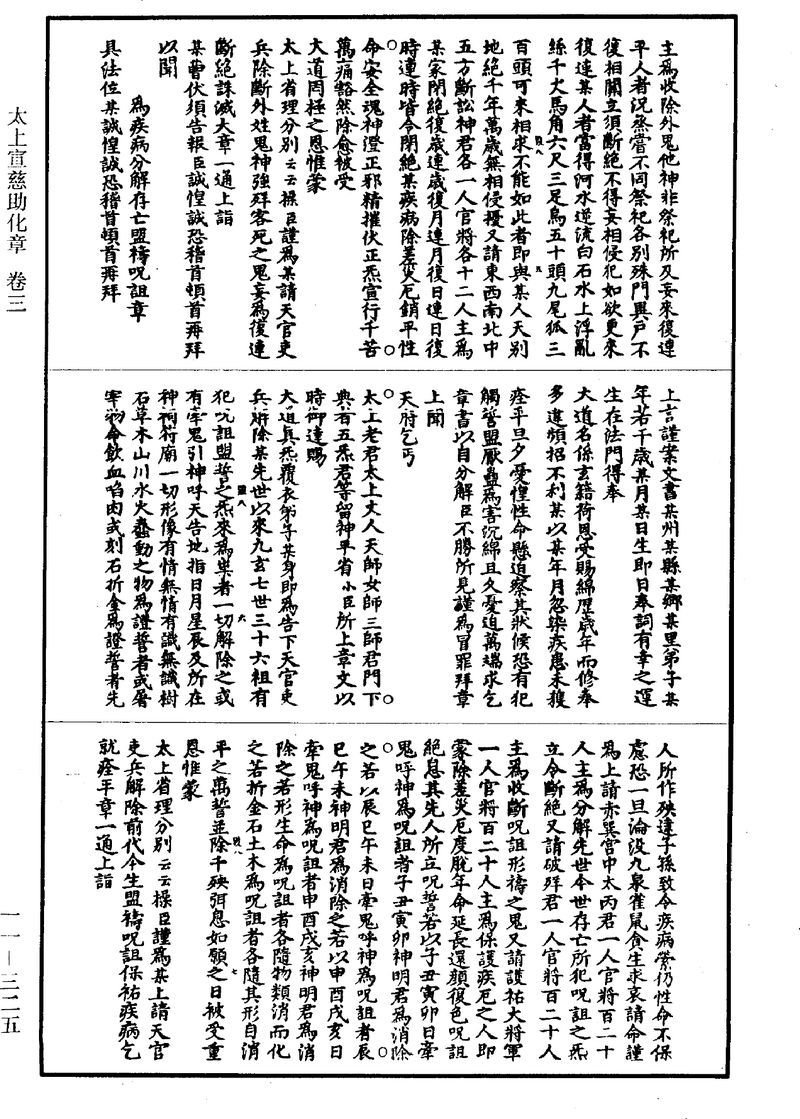 太上宣慈助化章 卷三
一一-三二五
主為收除外鬼他神非祭祀所及妄來復連
平人者況烝嘗不同祭祀各別殊門異戶不
復相關立須斷絕不得妄相侵犯如欲更來
復連某人者當得河水逆流白石水上浮亂
絲千丈馬角六尺三足烏五十頭九尾狐三
百頭可來相求不能如此者即與某人天別
地絕千年萬歲無相侵擾又請東西南北中
五方斷訟神君各一人官將各十二人主為
某家閉絕復歲連歲復月連月復日連日復
時連時皆令閉絕某疾病除差災厄銷平性
命安全魂神澄正邪精摧伏正炁宣行千苦
萬痛豁然除愈被受
大道罔極之恩惟蒙
太上省理分別云云操臣謹為某請天官吏
兵除斷外姓鬼神強殍客死之鬼妄為復連
斷絕誅滅大章一通上詣
某曹伏須告報臣誠惶誠恐稽首頓首再拜
以聞
為疾病分解存亡盟禱呪詛章
具法位某誠惶誠恐稽首頓首再拜
上言謹案文書某州某縣某鄉某里弟子某
年若干歲某月某日生即日奉詞有幸之運
生在法門得奉
大道名係玄籍荷恩受賜綿歷歲年而修奉
多違頻招不利某以某年月忽染疾患未獲
痊平旦夕憂惶性命懸迫察其狀候恐有犯
觸誓盟厭蠱為害沉綿且久憂迫萬端求乞
章書以自分解臣不勝所見謹為冒罪拜章
上聞
天府乞丐
太上老君太上丈人天師女師三師君門下
典者五炁君等留神平省小臣所上章文以
時御達賜
大道真炁覆衣弟子某身即為告下天官吏
兵解除某先世以來九玄七世三十六祖有
犯呪詛盟誓之炁來為祟者一切解除之或
有牽鬼引神呼天告地指日月星辰及所在
神祠符廟一切形像有情無情有識無識樹
石草木山川水火蠢動之物為證誓者或屠
宰物命飲血啗肉或刻石折金為證誓者先
人所作殃逮子孫致令疾病縈仍性命不保
慮恐一旦淪沒九泉雀鼠貪生求哀請命謹
為上請赤巽宮中太丙君一人官將百二十
人主為分解先世今世存亡所犯呪詛之炁
立令斷絕又請破殍君一人官將百二十人
主為收斷呪詛形禱之鬼又請護祐大將軍
一人官將百二十人主為保護疾厄之人即
蒙除差災厄度脫年命延長還顏復色呪詛
絕息其先人所立呪誓若以子丑寅卯日牽
鬼呼神為呪詛者子丑寅卯神明君為消除
之若以辰巳午未日牽鬼呼神為呪詛者辰
巳午未神明君為消除之若以申酉戌亥日
牽鬼呼神為呪詛者申酉戌亥神明君為消
除之若形生命為呪詛者各隨物類消而化
之若折金石土木為呪詛者各隨其形自消
平之萬誓並除千殃弭息如願之日被受重
恩惟蒙
太上省理分別云云操臣謹為某上請天官
吏兵解除前代今生盟禱呪詛保祐疾病乞
就痊平章一通上詣